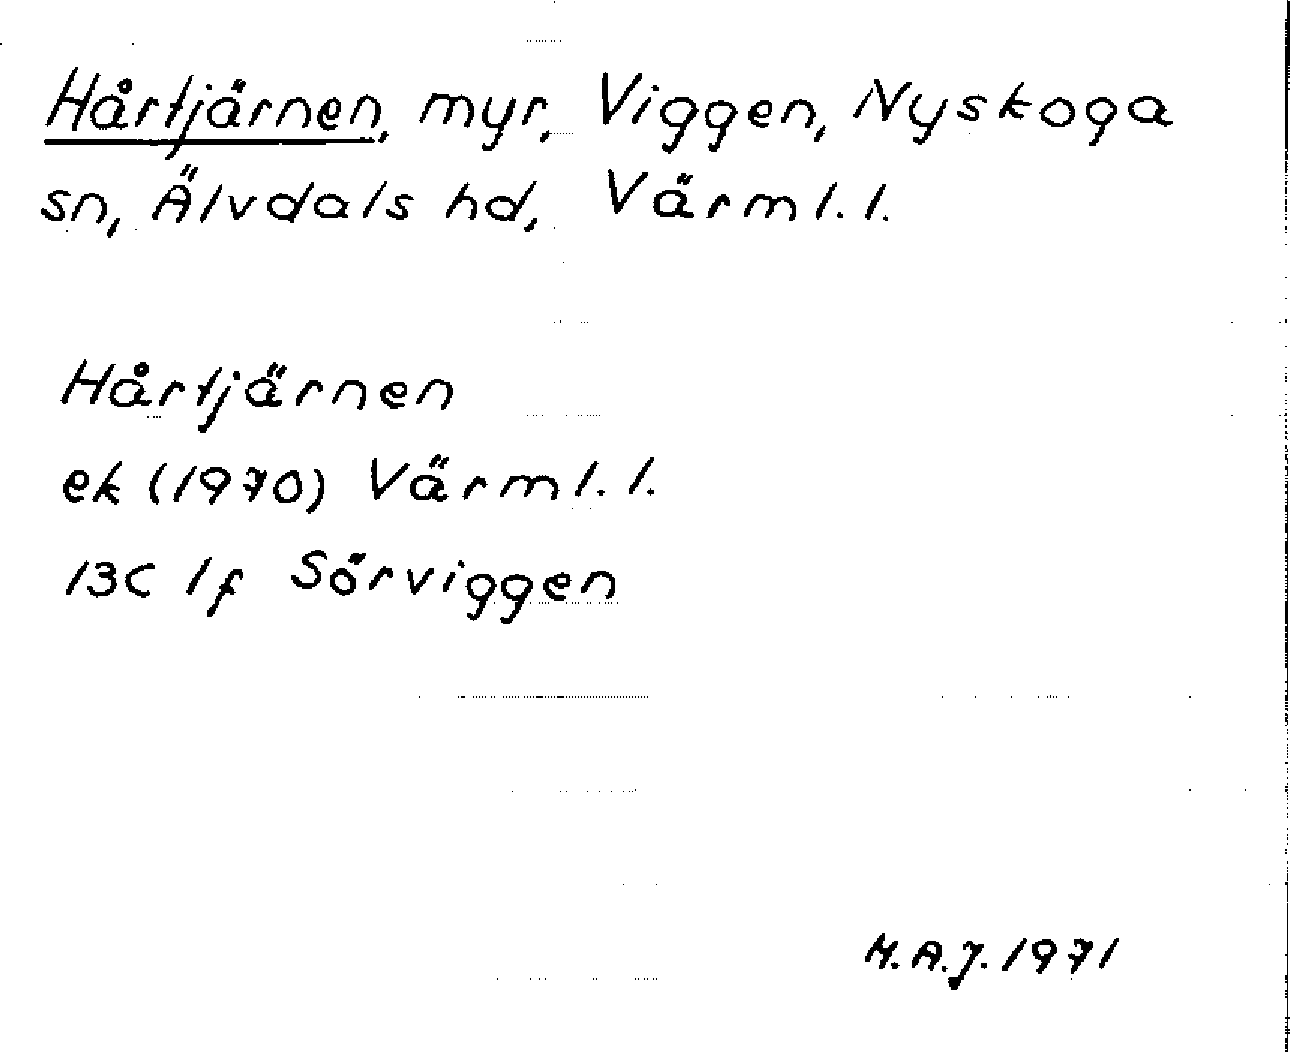 Hårtjärnen, myr, Viggen, Nyskoga
sn, Älvdals hd, Värml. l.
Hårtjärnen
ek (1970) Värml. l.
13C 1f Sörviggen
M.A.J. 1971